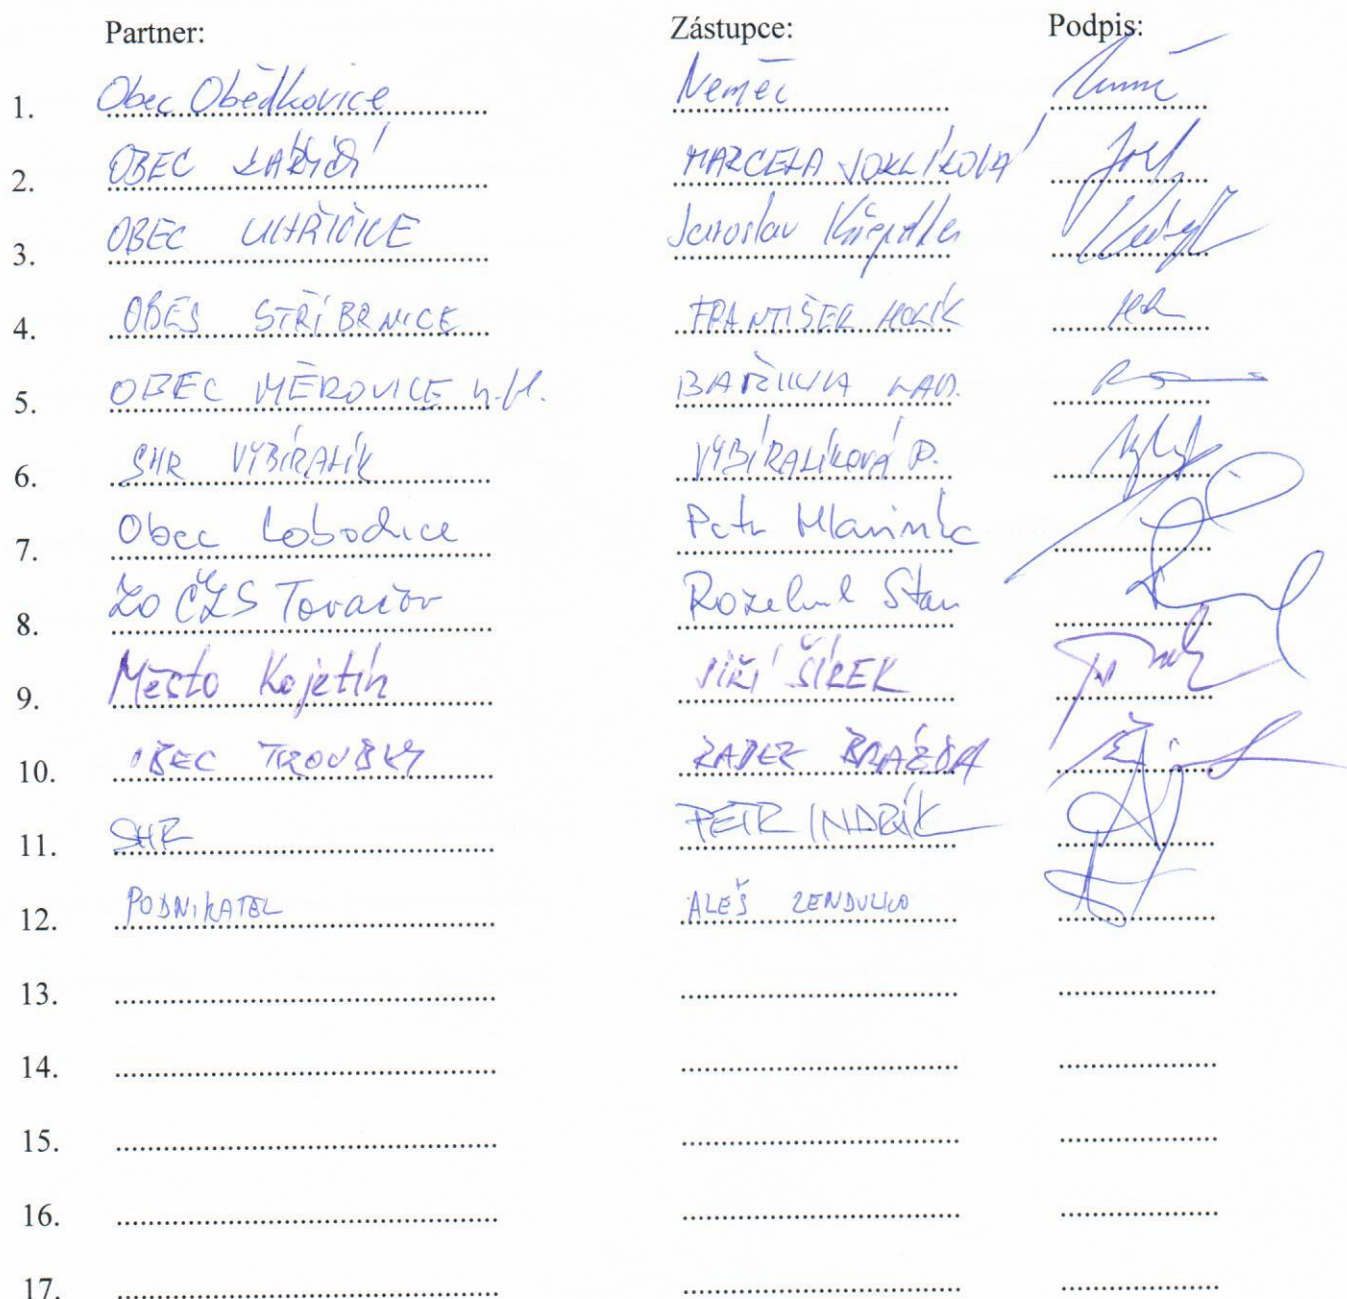 Partner: Zástupce: Podpis:
1. Obec Obědkovice Němec
2. OBEC MARCELA JOKLÍKOVÁ
3. OBEC UHŘIČICE Jaroslav Křepelka
4. OBEC STŘÍBRNICE FRANTIŠEK HOLÍK
5. OBEC MĚROVICE n.H. LAD.
6. SHR VYBÍRALÍK VYBÍRALÍKOVÁ P.
7. Obec Lobodice Petr
8. ZO ČZS Tovačov Stan
9. Město Kojetín JIŘÍ ŠÍREK
10. OBEC TROUBKY RADEK BRÁZDA
11. SHR PETR INDRÁK
12. PODNIKATEL ALEŠ ZENDULKA
13.
14.
15.
16.
17.